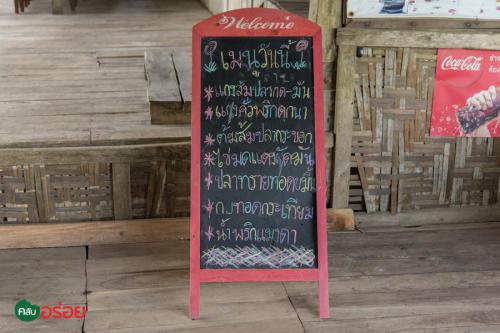 Welcome
เมนูวันนี้
แกงส้มปลากด-มัน
แกงคั่วพริกนกนา
ต้มส้มปลากระบอก
ไข่มดแดงผัดมัน
ปลาทรายทอดขมิ้น
กบทอดกระเทียม
น้ำพริกแมงดา
Coca-Cola
คลับ อร่อย